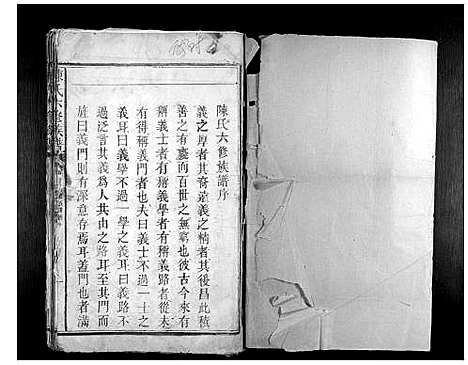 陳氏六修族譜序
義之厚者其裔遠義之精者其後昌此積
善之有慶而百世之無窮也彼古今來有
稱義士者有稱義學者有稱義路者從未
有得稱義門者也夫曰義士不過一士之
義耳曰義學不過一學之義耳曰義路不
過泛言其義為人共由之路耳至其門而
旌曰義門則有深意存焉耳蓋門也者滿
陳氏六修族譜